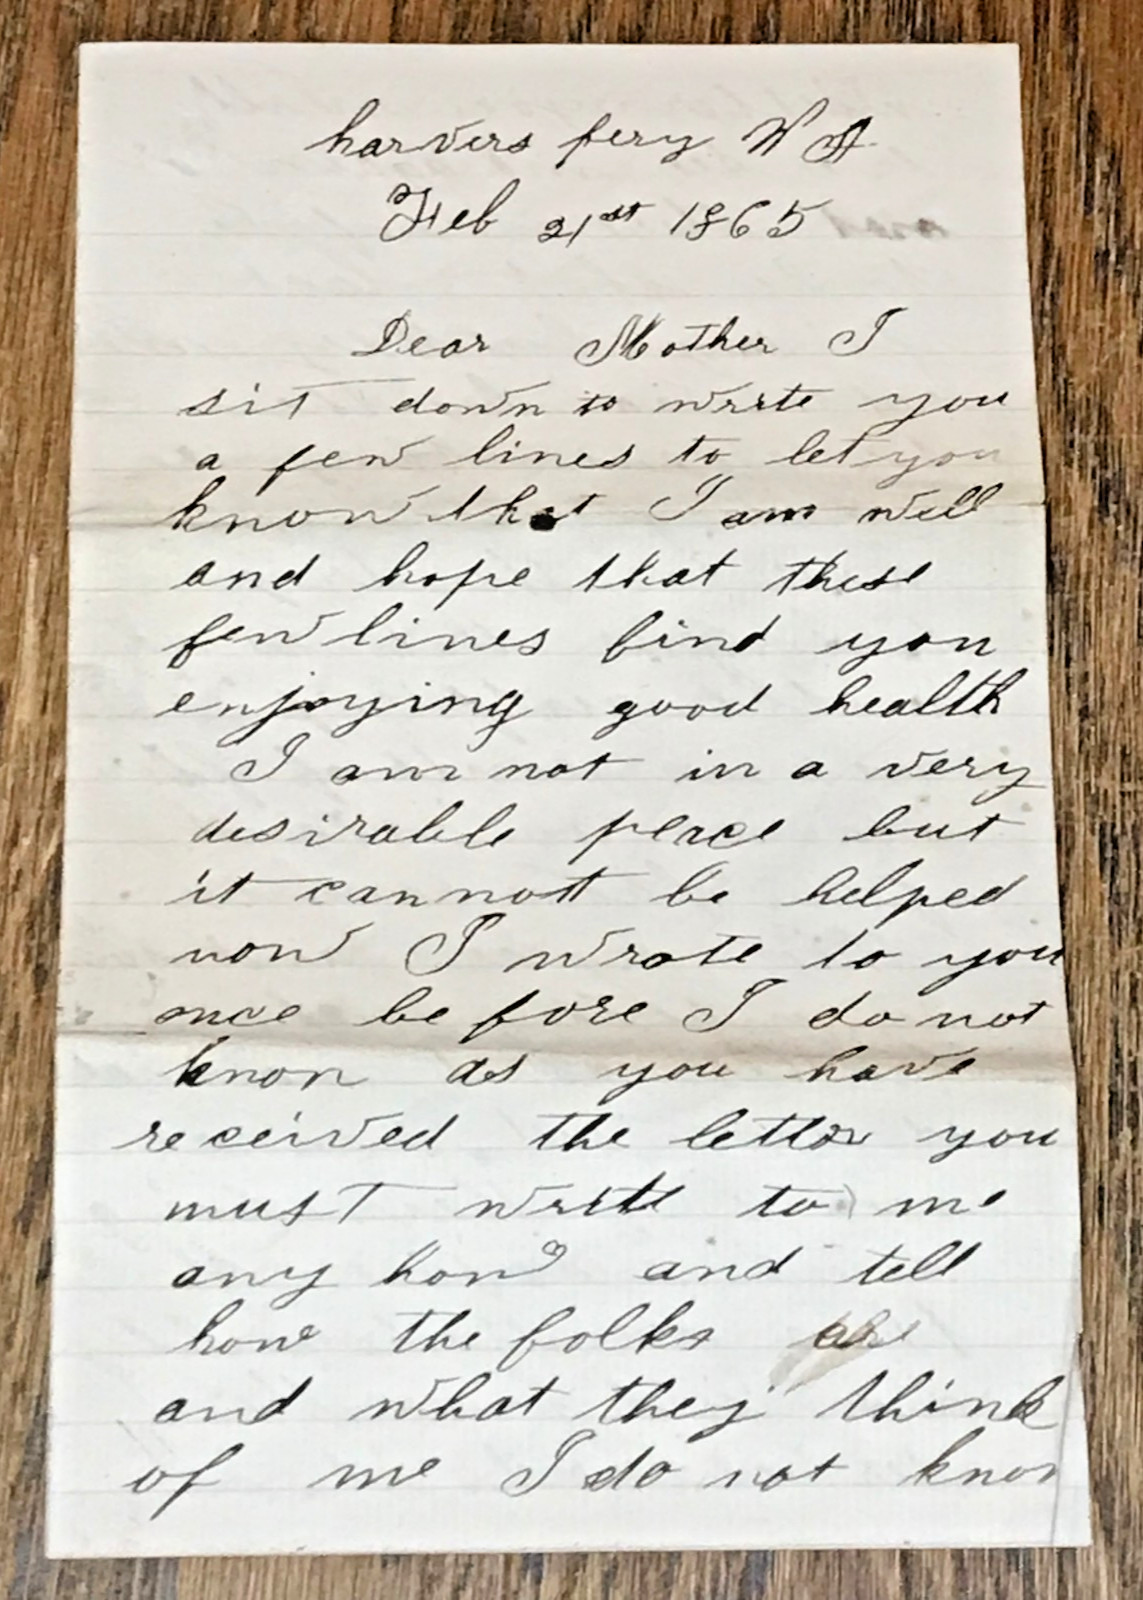 harvers fery W A
Feb 21st 1865
Dear Mother I
sit down to write you
a few lines to let you
know that I am well
and hope that these
few lines find you
enjoying good health
I am not in a very
desirable place but
it cannott be helped
now I wrote to you
once be fore I do not
know as you have
received the letter you
must write to me
any how and tell
how the folks are
and what they think
of me I do not know